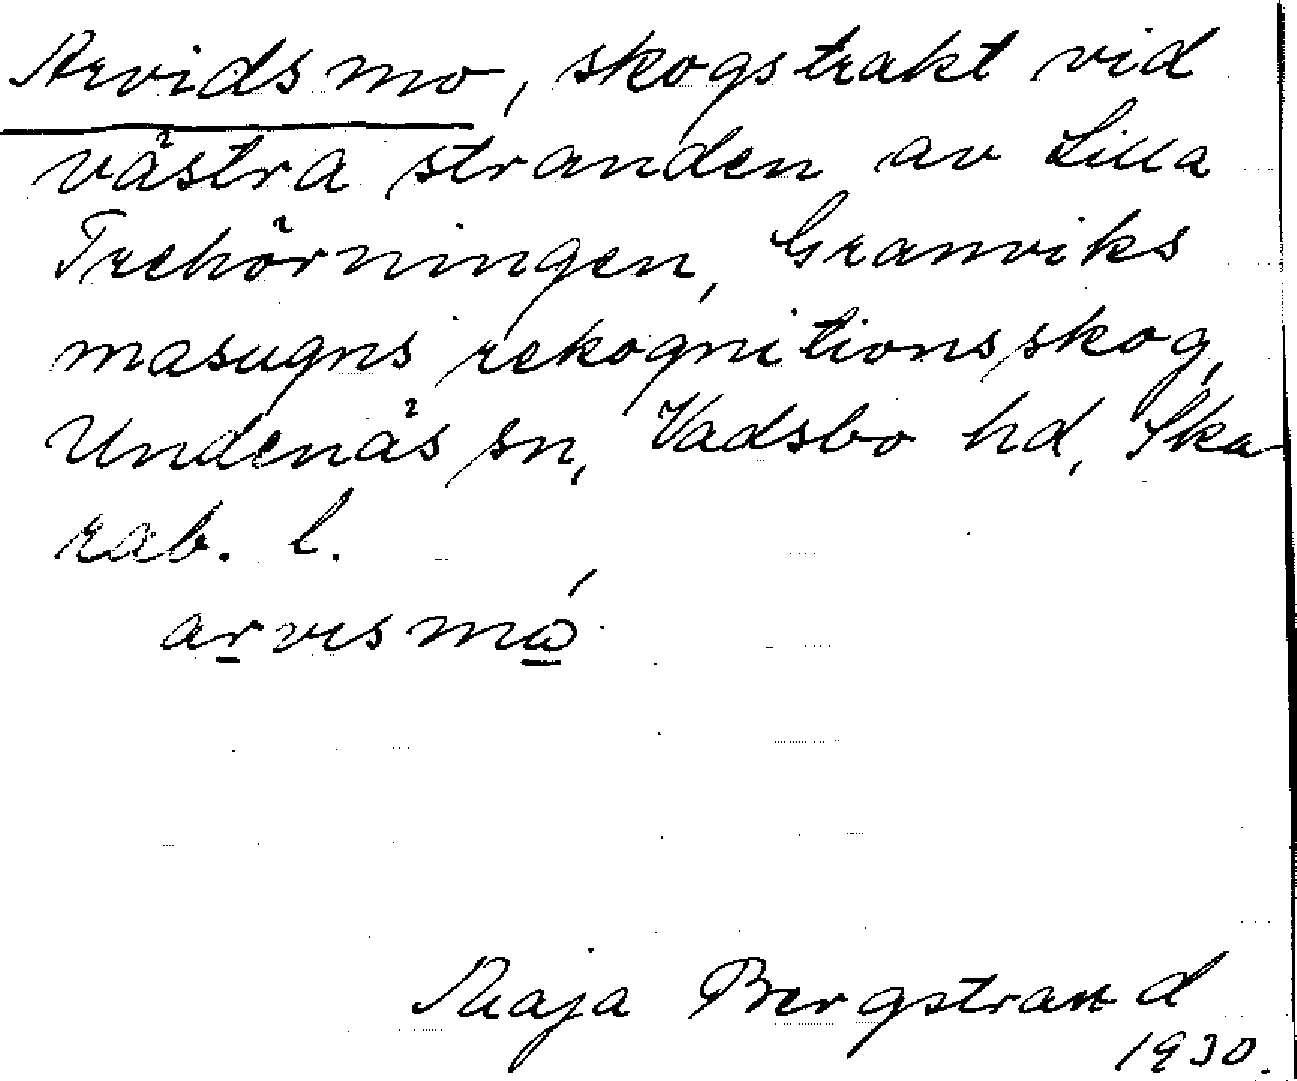 Arvidsmo, skogstrakt vid
västra stranden av Lilla
Trehörningen, Granviks
masugns rekognitionsskog,
Undenäs sn, Vadsbo hd, Ska-
rab. l.
arvismó
Maja Bergstrand
1930.